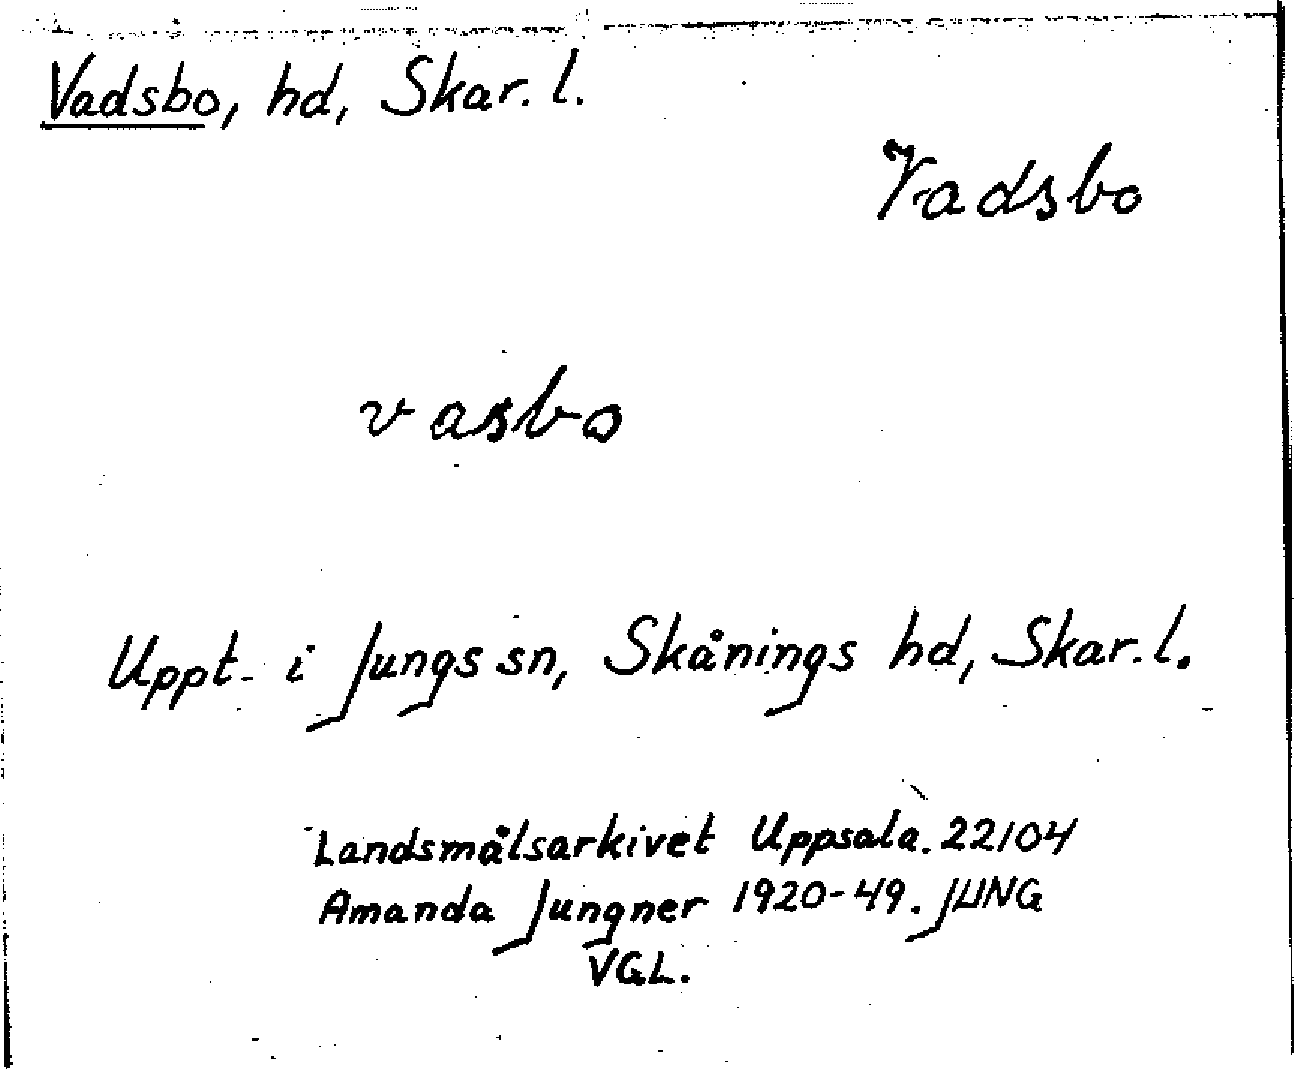 Vadsbo, hd, Skar. l.
Vadsbo
vasbo
Uppt. i Jungs sn, Skånings hd, Skar. l.
Landsmålsarkivet Uppsala. 22104
Amanda Jungner 1920-49. JUNG
VGL.